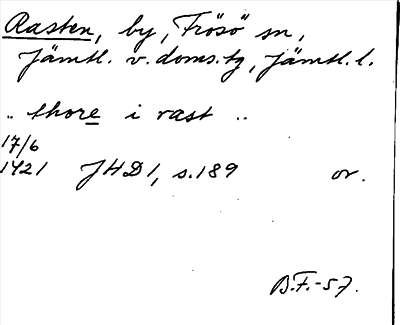 Rasten, by, Frösö sn,
Jämtl. v. doms.tg, Jämtl. l.
.. thore i rast ..
17/6
1421 JHD 1, s. 189 or.
B.F. -57.